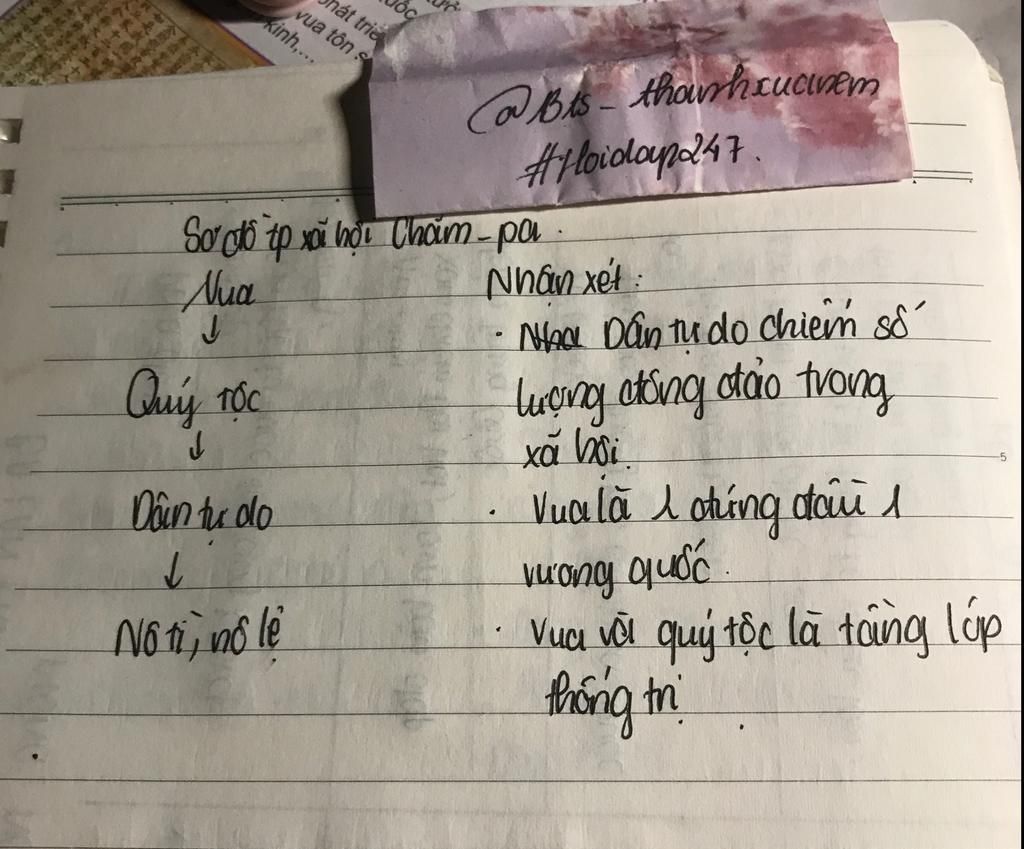 phát triể
vua tôn s
kính,...
@Bts_thanhxuanem
#Hoidap247.
Sơ đồ tp xã hội Chăm-pa.
Vua
↓
Quý tộc
↓
Dân tự do
↓
Nô tì, nô lệ
Nhận xét:
· Dân tự do chiếm số
lượng đông đảo trong
xã hội.
· Vua là 1 đứng đầu 1
vương quốc.
· Vua và quý tộc là tầng lớp
thống trị
5